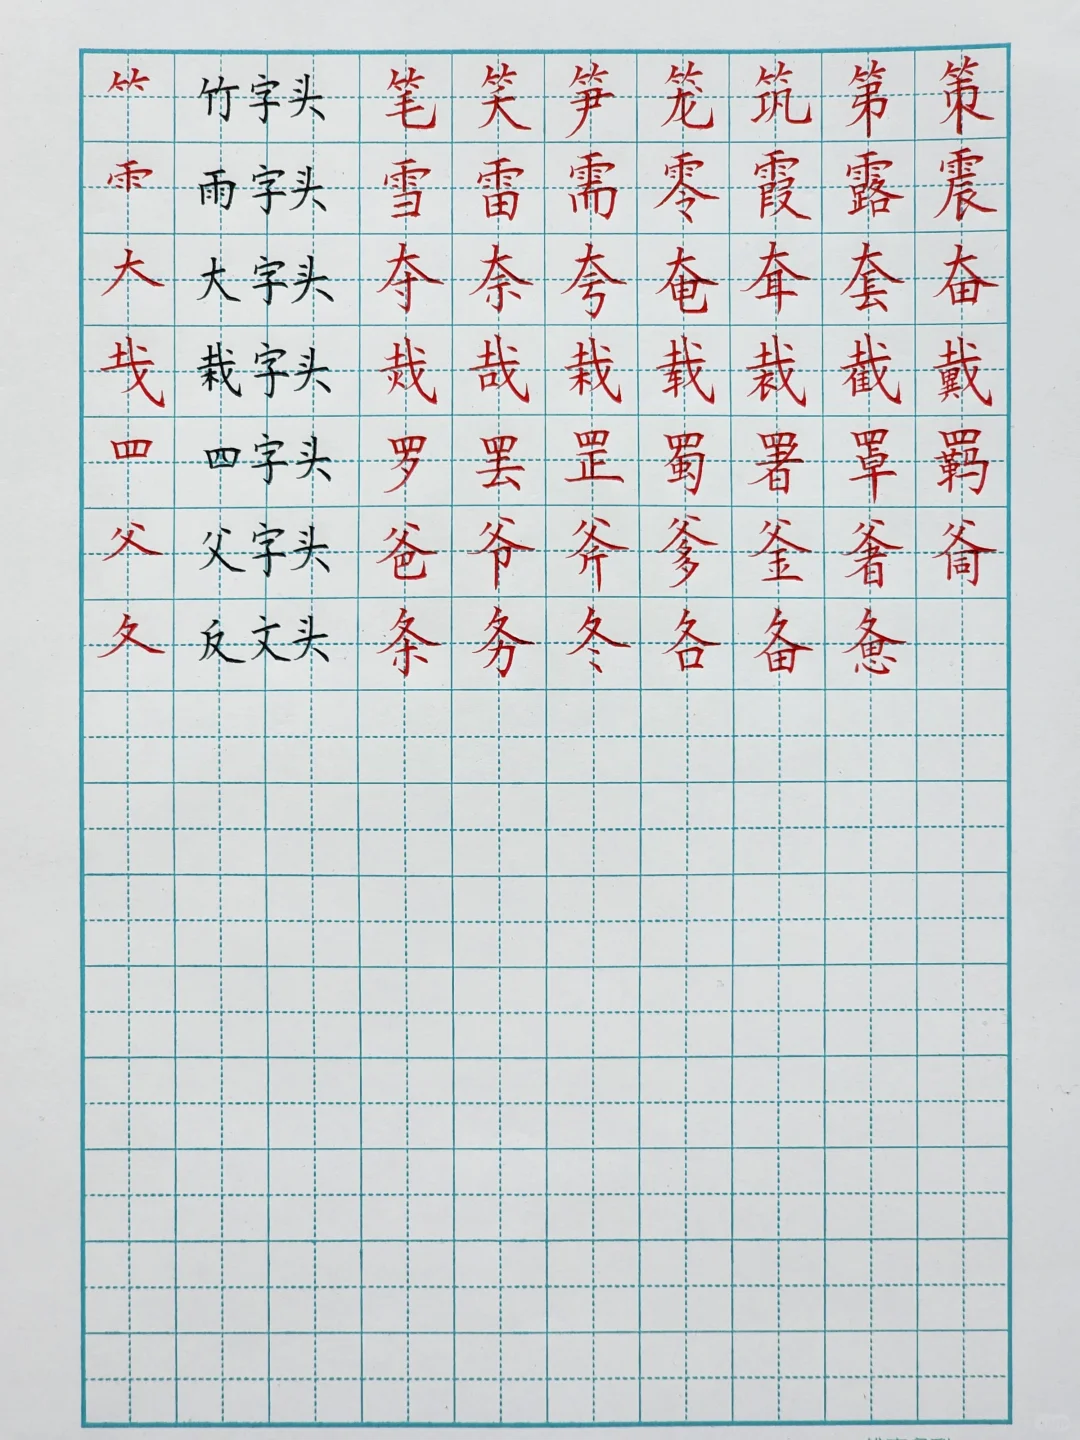 ⺮ 竹字头 笔 笑 笋 笼 筑 第 策
⻗ 雨字头 雪 雷 需 零 霞 露 震
大 大字头 夺 奈 夸 奄 耷 套 奋
𢦏 栽字头 烖 哉 栽 载 裁 截 戴
罒 四字头 罗 罢 罡 蜀 署 罩 羁
父 父字头 爸 爷 斧 爹 釜
夂 反文头 条 务 冬 各 备 惫